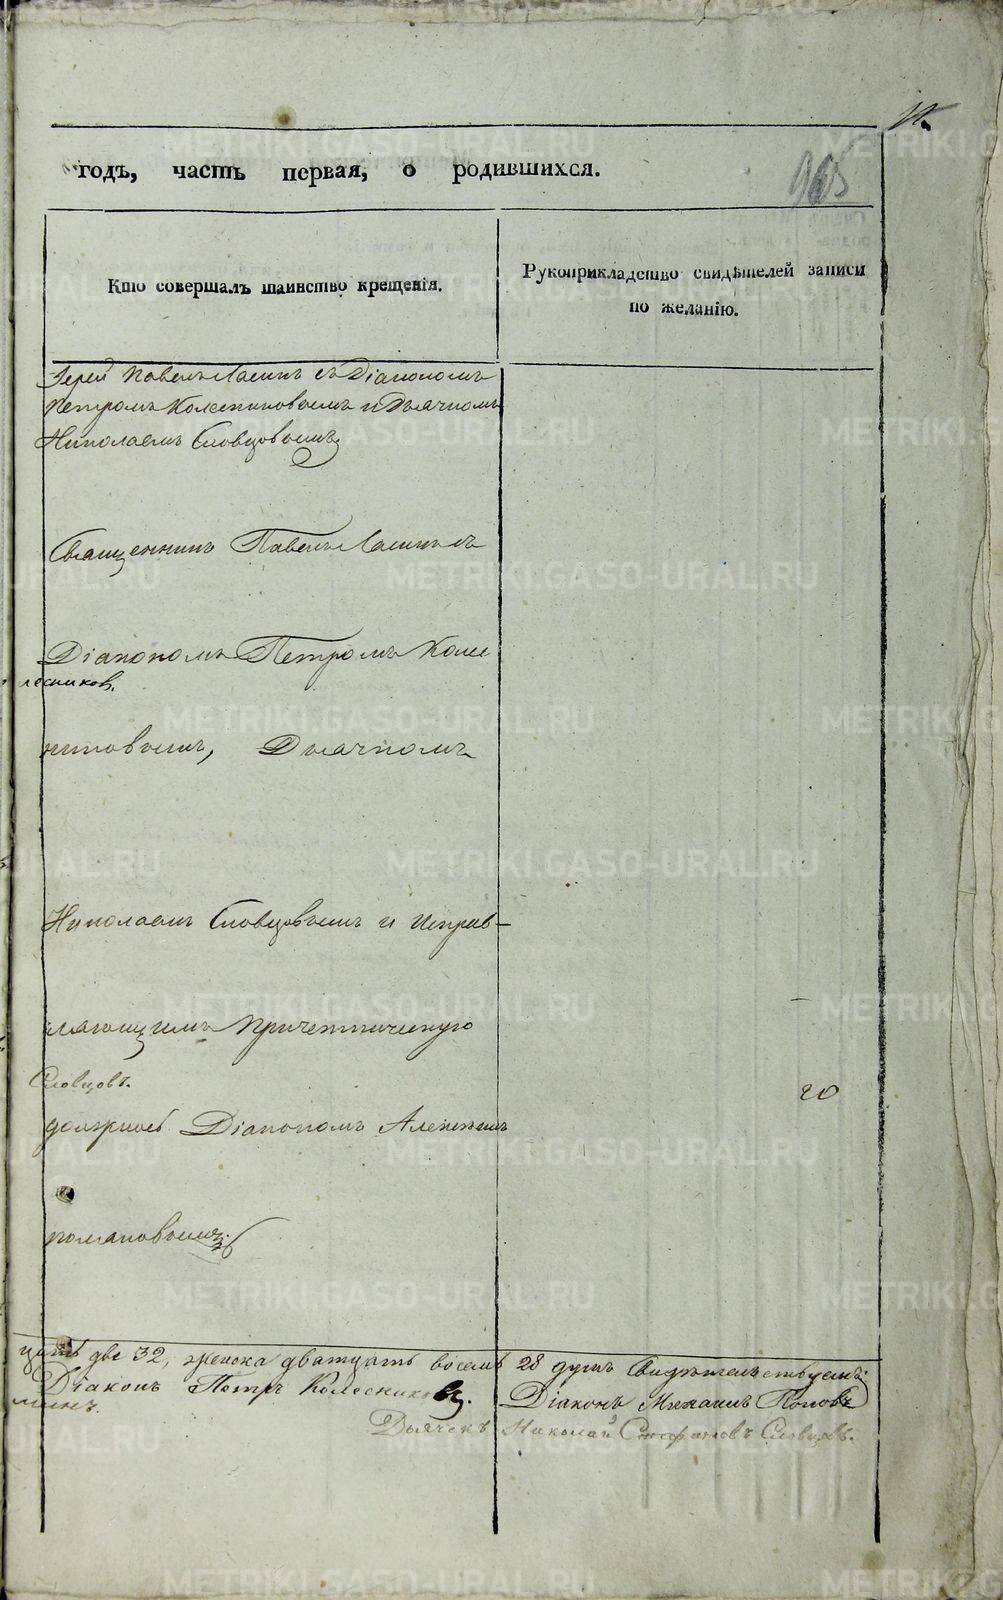 11.
965
годъ, часть первая, о родившихся.
Кто совершалъ таинство крещенія.
Рукоприкладство свидѣтелей записи
по желанію.
Іерей Павелъ Ласинъ съ Діакономъ
Петромъ Колесниковымъ и Дьячкомъ
Николаемъ Словцовымъ
Священникъ Павелъ Ласинъ съ
Діакономъ Петромъ Коле
лесников.
никовымъ, Дьячкомъ
Николаемъ Словцовымъ и Исправ-
ляющимъ Причетническую
Словцовъ.
20
должность Діакономъ Алексѣемъ
романовымъ
цать две 32, женска дватцать восемь 28 душъ Свидѣтельствуемъ:
Діаконъ Петръ Колесниковъ. Діаконъ Михаилъ Поповъ
Дьячекъ Николай Стефановъ Словцовъ.
METRIKI.GASO-URAL.RU